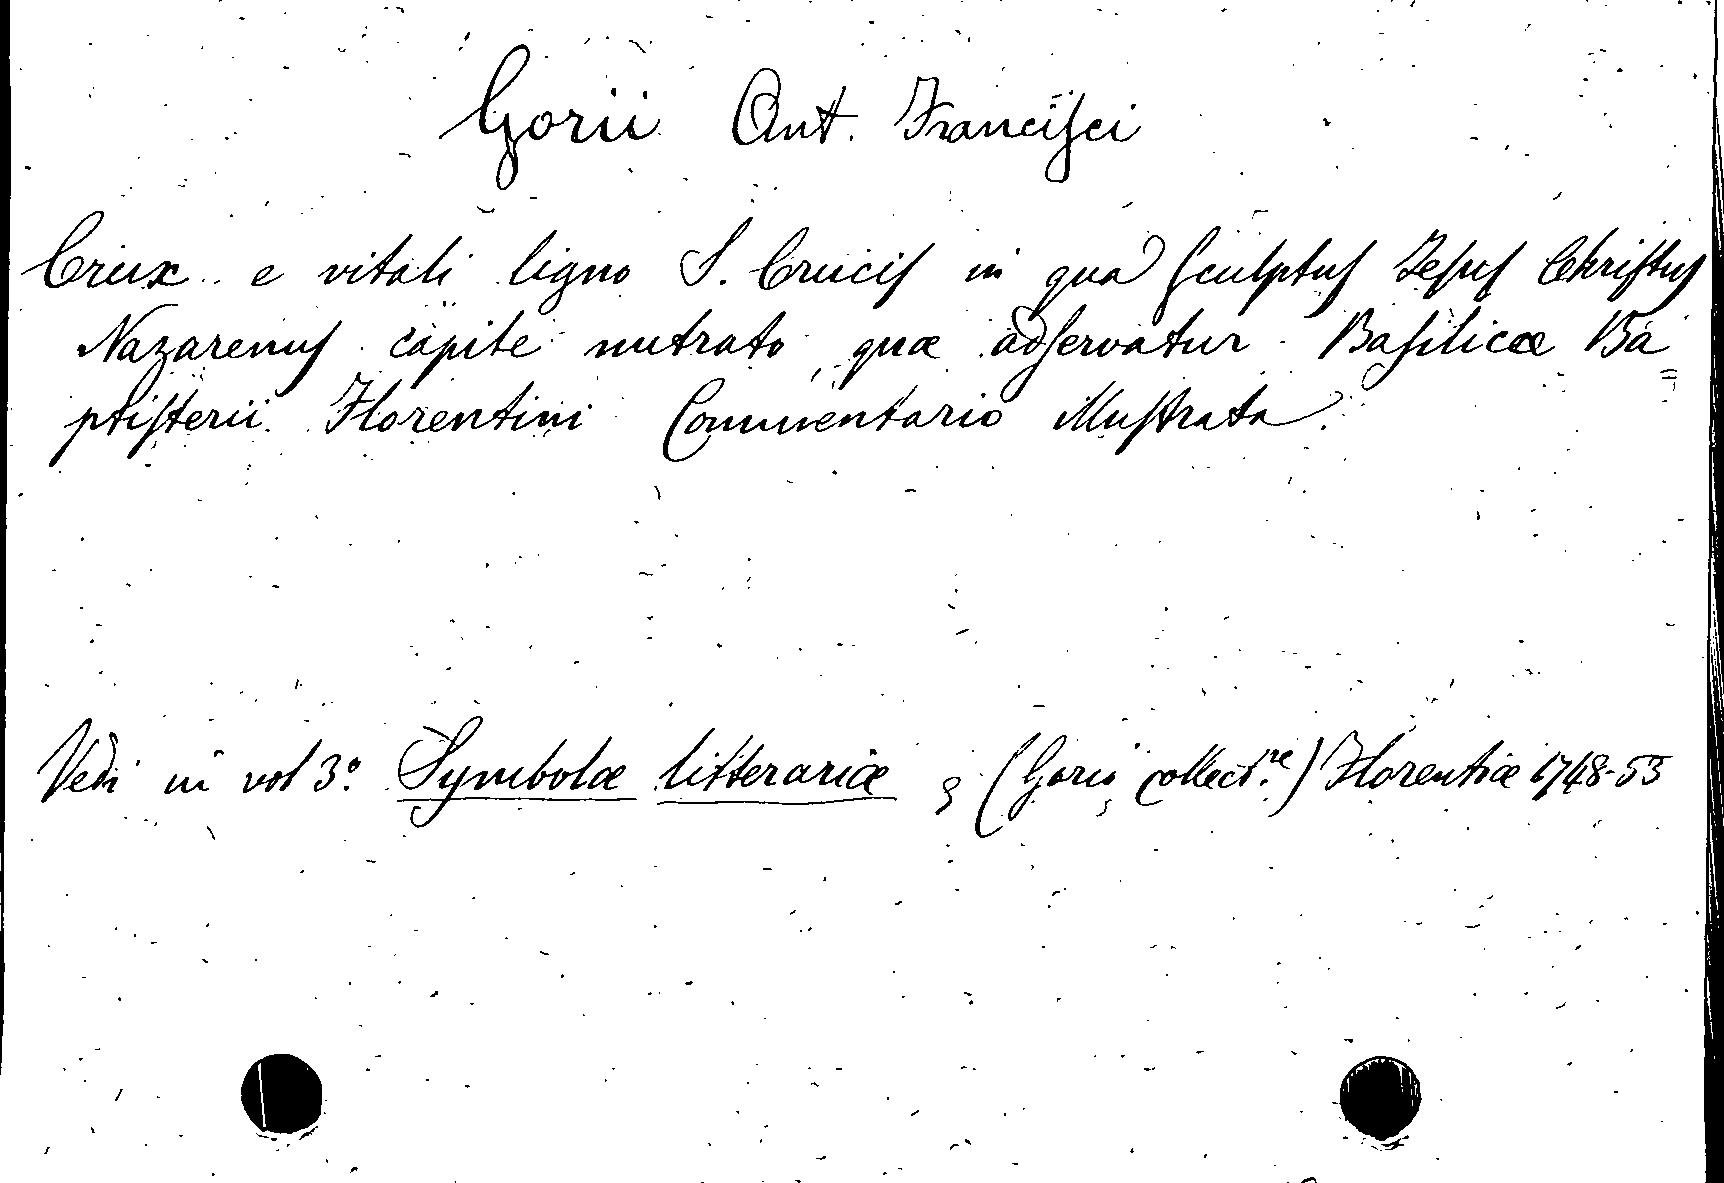 Gorii Ant. Franciſci
Crux e vitali ligno S. Cruciſ in qua ſculptuſ Jeſuſ Chriſtuſ
Nazarenuſ capite nutrato, quæ adſervatur Baſilicæ Ba=
ptiſterii Florentini Commentario illuſtrata.
Vedi in vol 3.º Symbolæ litterariæ, (Gorio, collect.re) Florentiæ 1748-53